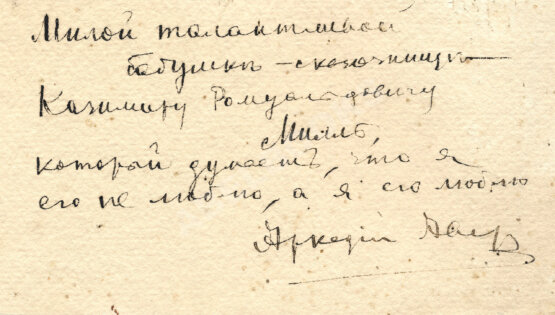 Милой талантливой
бабушкѣ-сказочницѣ
Казимиру Ромуальдовичу
Милль,
который думаетъ, что я
его не люблю, а я его люблю
Аркадій